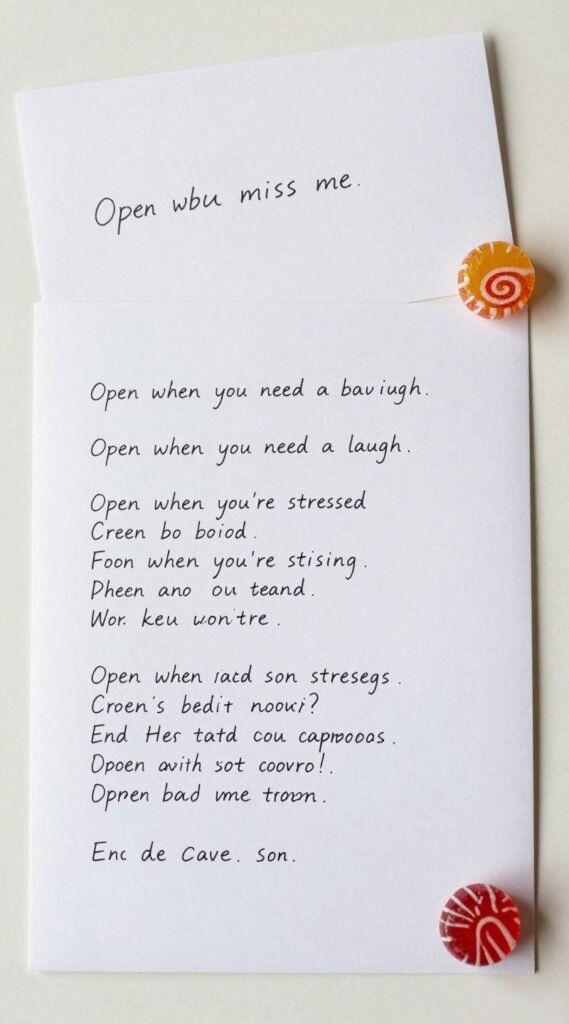 Open wbu miss me.
Open when you need a baviugh.
Open when you need a laugh.
Open when you're stressed
Creen bo boiod.
Foon when you're stising.
Pheen ano ou teand.
Wor. keu won'tre.
Open when iacd son stresegs.
Croen's bedit nooui?
End Her tatd cou capmooas.
Opoen avith sot coovro!.
Opnen bad vme troon.
Enc de Cave. son.